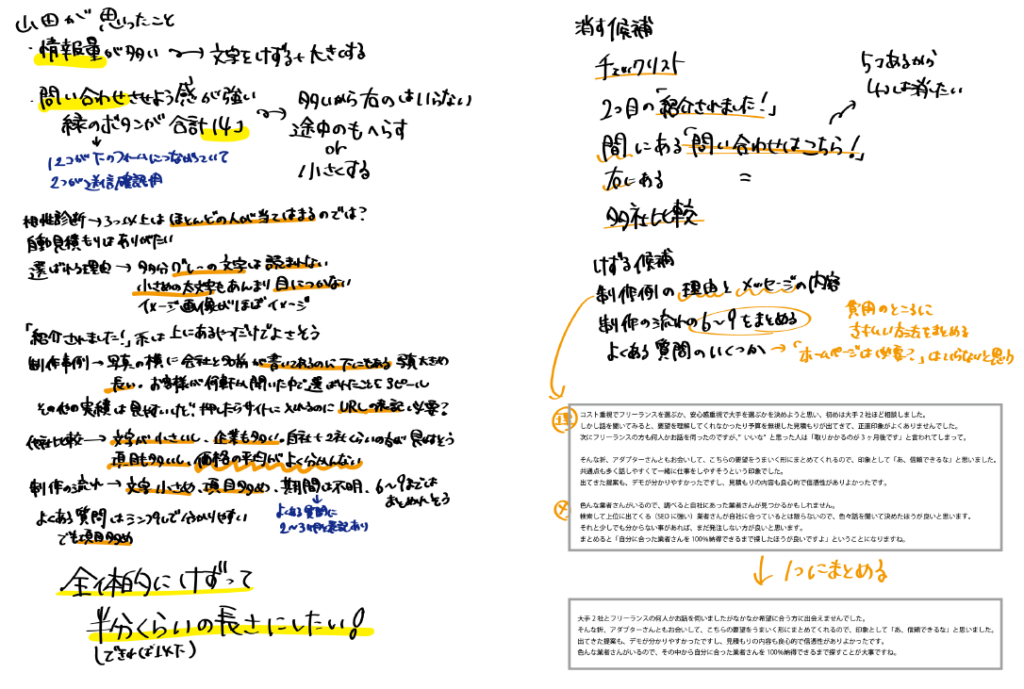 山田が思ったこと
・情報量が多い → 文字をけずる+大きくする
・問い合わせさせよう感が強い
緑のボタンが合計14コ → 多いから右のはいらない
途中のもへらす
or
小さくする
12コが下のフォームにつながっていて
2つが送信確認用
相性診断→3つ以上はほとんどの人が当てはまるのでは?
自動見積もりはありがたい
選ばれる理由→多分グレーの文字は読まれない
小さめの太文字もあんまり目につかない
イメージ画像がほぼイメージ
「紹介されました!」系は上にあるやつだけでよさそう
制作事例→写真の横に会社と名前が書いてあるのに下にもある 写真大きめ
長い。お客様が何軒も聞いた中で選ばれたことを3ピール
その他の実績は見やすいけど、押したらサイトに入れるのにURLの表記必要?
他社比較→文字が小さいし、企業も多い。自社+2社くらいの方が見やすそう
項目も多いし、価格の平均がよく分かんない
制作の流れ→文字小さめ、項目多め、期間は不明、6〜9までは
まとめれそう
よくある質問に
2〜3ヶ月と表記あり
よくある質問はシンプルで分かりやすい
でも項目多め
全体的にけずって
半分くらいの長さにしたい!
(できれば以下)
消す候補
チェックリスト
2つ目の「紹介されました!」
5つあるから
4つは消したい
間にある「問い合わせはこちら!」
右にある 〃
多社比較
けずる候補
制作例の理由とメッセージの内容
制作の流れの6〜9をまとめる
質問のところに
支払い方法をまとめる
よくある質問のいくつか→「ホームページは必要?」はいらないと思う
理
コスト重視でフリーランスを選ぶか、安心感重視で大手を選ぶかを決めようと思い、初めは大手2社ほど相談しました。
しかし話を聞いてみると、要望を理解してくれなかったり予算を無視した見積もりが出てきて、正直印象がよくありませんでした。
次にフリーランスの方も何人かお話を伺ったのですが、"いいな" と思った人は「取りかかるのが3ヶ月後です」と言われてしまって。
そんな折、アダプターさんともお会いして、こちらの要望をうまく形にまとめてくれるので、印象として「あ、信頼できるな」と思いました。
共通点も多く話しやすくて一緒に仕事をしやすそうという印象でした。
出てきた提案も、デモが分かりやすかったですし、見積もりの内容も良心的で信憑性がありよかったです。
メ
色んな業者さんがいるので、調べると自社にあった業者さんが見つかるかもしれません。
検索して上位に出てくる(SEOに強い)業者さんが自社に合っているとは限らないので、色々話を聞いて決めたほうが良いと思います。
それと少しでも分からない事があれば、まだ発注しない方が良いと思います。
まとめると「自分に合った業者さんを100%納得できるまで探したほうが良いですよ」ということになりますね。
↓ 1つにまとめる
大手2社とフリーランスの何人かお話を伺いましたがなかなか希望に合う方に出会えませんでした。
そんな折、アダプターさんともお会いして、こちらの要望をうまく形にまとめてくれるので、印象として「あ、信頼できるな」と思いました。
出てきた提案も、デモが分かりやすかったですし、見積もりの内容も良心的で信憑性がありよかったです。
色んな業者さんがいるので、その中から自分に合った業者さんを100%納得できるまで探すことが大事ですね。